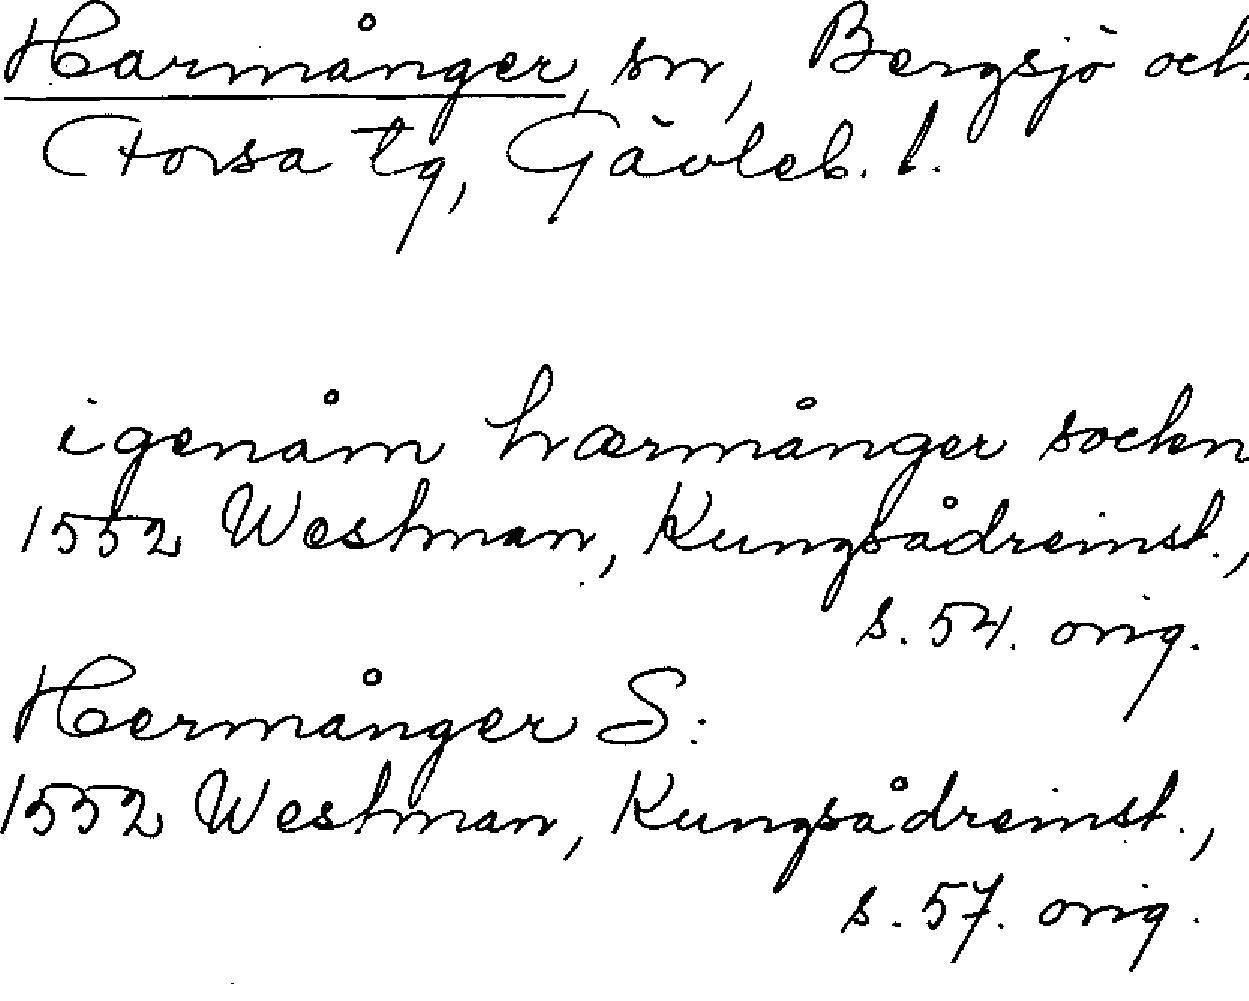 Harmånger, sn, Bergsjö och
Forsa tg, Gävleb. l.
igenåm hwærmånger sockn
1552 Westman, Kungsådreinst.,
s. 54. orig.
Hermånger S:
1552 Westman, Kungsådreinst.,
s. 57. orig.